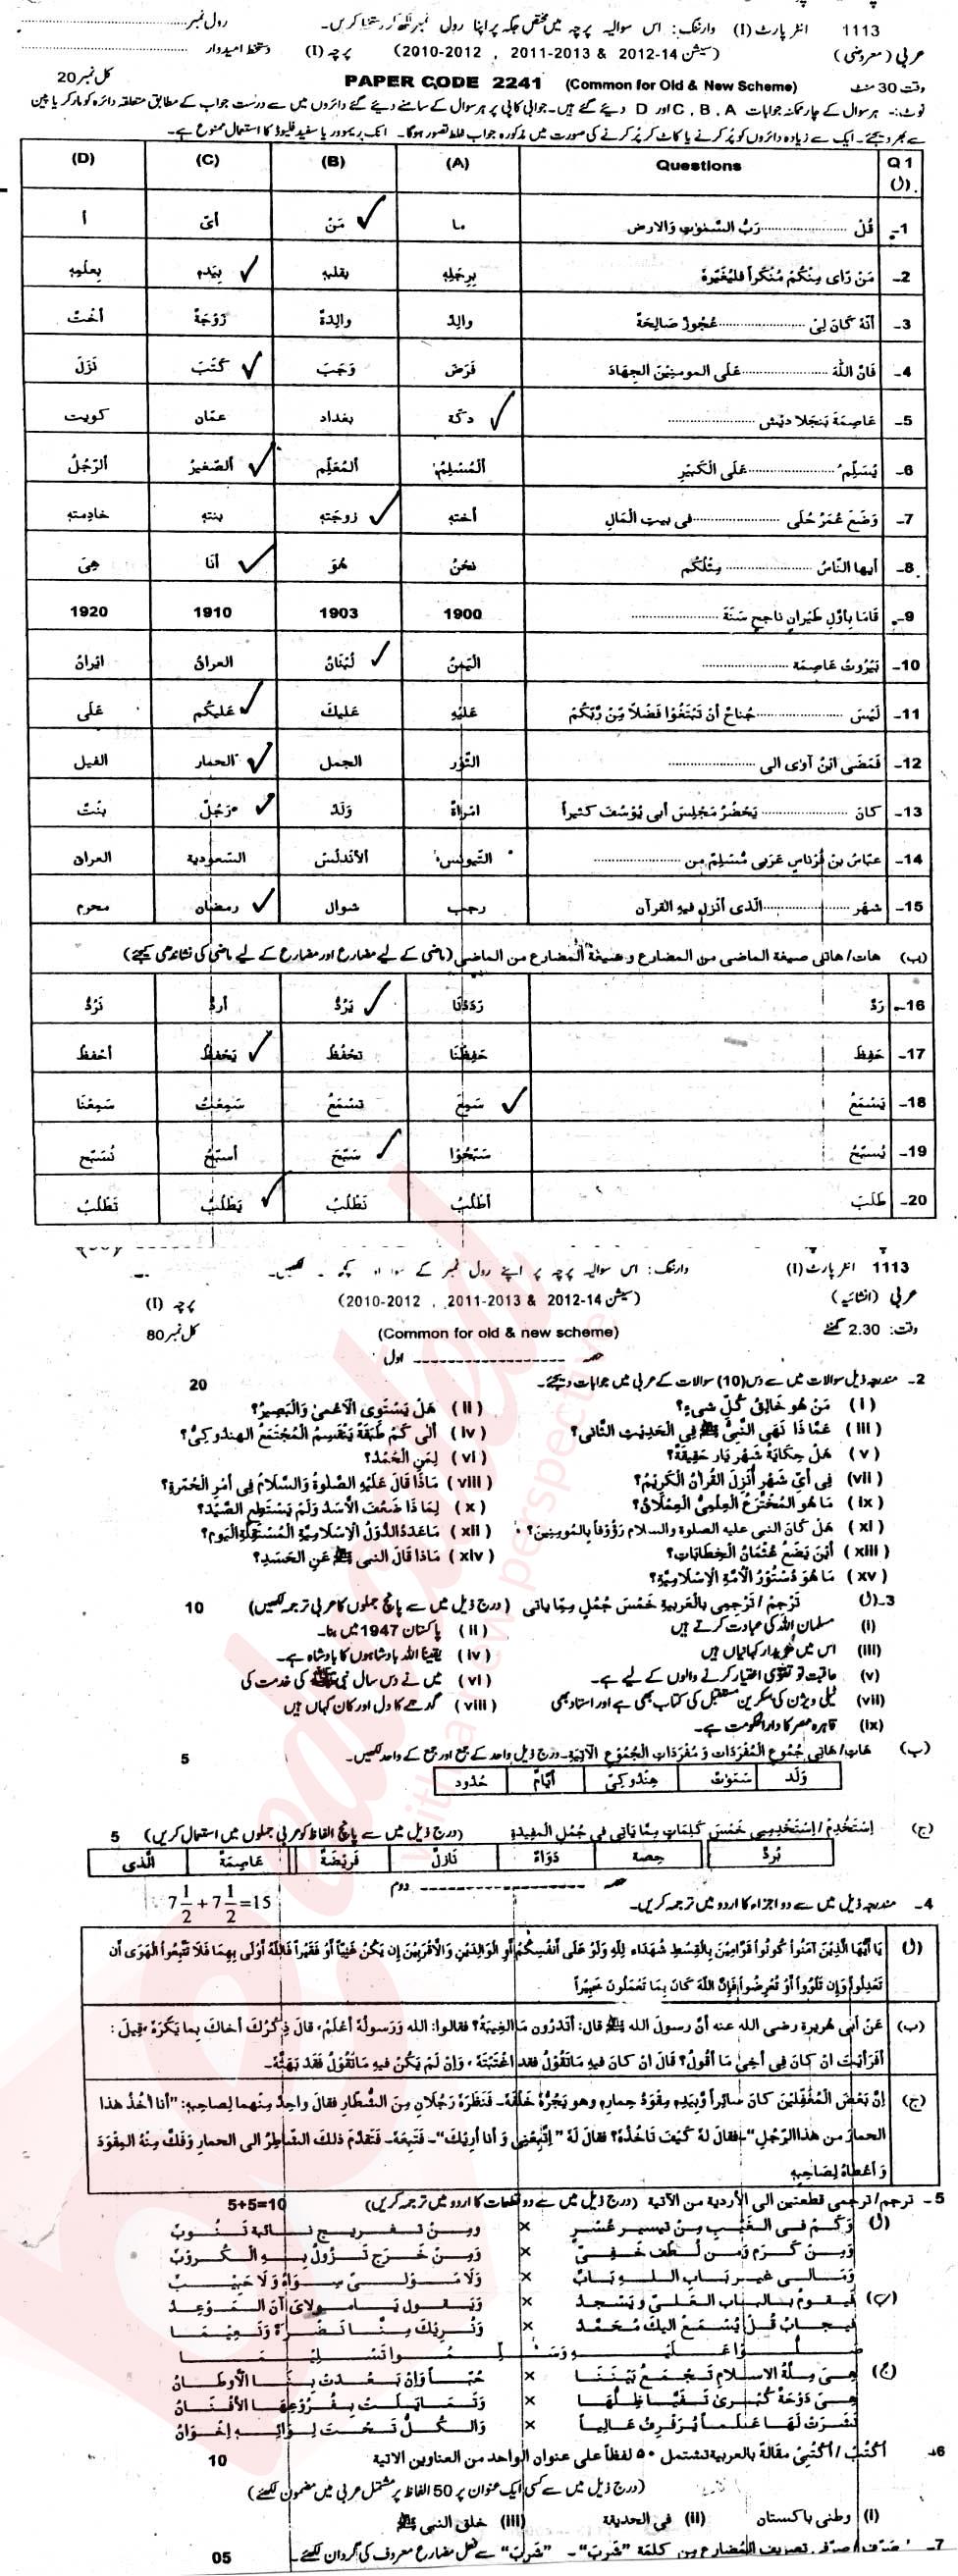 1113 انٹر پارٹ (I) وارننگ: اس سوالیہ پرچہ میں مختص جگہ پر اپنا رول نمبر لکھ کر دستخط کریں۔ رول نمبر
عربی (معروضی) (سیشن 14-2012 & 2013-2011 , 2012-2010) پرچہ (I) دستخط امیدوار
وقت 30 منٹ PAPER CODE 2241 (Common for Old & New Scheme) کل نمبر 20
نوٹ:۔ ہر سوال کے چار ممکنہ جوابات C , B , A اور D دیئے گئے ہیں۔ جوابی کاپی پر ہر سوال کے سامنے دیئے گئے دائروں میں سے درست جواب کے مطابق متعلقہ دائرہ کو مارکر یا پین
سے بھر دیجئے۔ ایک سے زیادہ دائروں کو پُر کرنے یا کاٹ کر پُر کرنے کی صورت میں مذکورہ جواب غلط تصور ہوگا۔ انک ریموور یا سفید فلیوڈ کا استعمال ممنوع ہے۔
Q 1 (ا) Questions (A) (B) (C) (D)
1۔ قُلْ .......... رَبُّ السَّمٰوٰتِ وَالارض ما مَنْ أىّ أ
2۔ مَنْ رَاى مِنْكُمْ مُنْكَراً فَلْيُغَيِّرهُ بِرِجلِهِ بقلبهِ بِيَدِهِ بِعلمِهِ
3۔ أنّهُ كَانَ لِىْ .......... عُجُوزٌ صَالِحَةٌ والِدٌ والِدةٌ زَوْجَةٌ أختٌ
4۔ فَانَّ اللّٰهَ .......... عَلَى المومنِيْنَ الجِهادَ فَرَضَ وَجَبَ كَتَبَ نَزَلَ
5۔ عَاصِمَةُ بَنجلا ديش .......... دكة بغداد عمّان كويت
6۔ يُسَلِّمُ .......... عَلَى الكَبِيْرِ ألمُسْلِمُ المُعَلِّم ألصّغيرُ ألرّجُلُ
7۔ وَضَعَ عُمَرُ حُلى .......... فى بيتِ الْمَالِ أخته زوجَته بنته خادِمته
8۔ أيها النَّاسُ .......... مِثْلُكُم نحنُ هُوَ أنَا هِىَ
9۔ قَامَا بِأوَّلِ طَيَرانٍ ناجحٍ سَنَةَ .......... 1900 1903 1910 1920
10۔ بَيْرُوتُ عَاصِمة .......... اليَمنُ لُبْنَانُ العراقُ ايرانُ
11۔ لَيْسَ .......... جُناحٌ أنْ تَبْتَغُوْا فَضْلاً مِّنْ رَّبِّكُمْ عَلَيْهِ عَليكَ عَليكُم عَلَى
12۔ فَمَضى ابنُ آوٰى الى .......... الثّور الجمل الحمار الفيل
13۔ كَانَ .......... يَحْضُرُ مَجْلِسَ أبى يُوْسُفَ كثيراً امرأةٌ وَلَدٌ رَجُلٌ بنتٌ
14۔ عبّاسُ بن فرناسٍ عَرَبى مُسْلِمٌ من .......... التيونس الأندلُس السعودية العراق
15۔ شهر .......... الّذى أنزِلَ فيهِ القرآن رجب شوال رمضان محرم
(ب) هات/ هاتى صيغة الماضى من المضارع وصيغة المضارع من الماضى (ماضی کے لیے مضارع اور مضارع کے لیے ماضی کی نشاندہی کیجئے)
16۔ رَدَّ رَدَدْنَا يَرُدُّ أردُّ نَرُدُّ
17۔ حَفِظَ حَفِظْنَا تحْفُظُ يَحْفَظُ أحْفظُ
18۔ يَسْمَعُ سَمِعَ تَسْمَعُ سَمِعْتُ سَمِعْنَا
19۔ يُسَبِّحُ سَبَّحُوْا سَبَّحَ أسَبِّحُ نُسَبِّح
20۔ طَلَبَ أطْلُبُ نَطْلُبُ يَطْلُبُ تَطْلُبُ
1113 انٹر پارٹ (I) وارننگ: اس سوالیہ پرچہ پر اپنے رول نمبر کے سوا کچھ نہ لکھیں۔
عربی (انشائیہ) (سیشن 14-2012 & 2013-2011 , 2012-2010) پرچہ (I)
وقت: 2.30 گھنٹے (Common for old & new scheme) کل نمبر 80
حصہ اول
2۔ مندرجہ ذیل سوالات میں سے دس (10) سوالات کے عربی میں جوابات دیجئے۔ 20
(i) مَنْ هُو خَالِقُ كُلِّ شىءٍ؟ (ii) هَلْ يَسْتَوِى الْاَعْمٰى وَالْبَصِيْرُ؟
(iii) عَمَّا ذَا نَهَى النَّبِىُّ ﷺ فِى الْحَدِيْثِ الثَّانِى؟ (iv) اَلٰى كَمْ طَبْقَةً يَنْقَسِمُ الْمُجْتَمَعُ الهِندوكىُّ؟
(v) هَلْ حِكَايَةُ شَهْر يَار حَقِيقَةٌ؟ (vi) لِمَنِ الْحَمْدُ؟
(vii) فِى أىِّ شَهْرٍ اُنْزِلَ الْقُرانُ الكَرِيْمُ؟ (viii) مَاذَا قَالَ عَلَيْهِ الصَّلٰوةُ وَالسَّلامُ فِى أمْرِ الْحُمُرَةِ؟
(ix) مَا هُوَ المُخْتَرَعُ العِلْمِىُّ العِمْلَاقُ؟ (x) لِمَا ذَا ضَعُفَ الْأَسَدُ وَلَمْ يَسْتَطِعِ الصَّيْدَ؟
(xi) هَلْ كَانَ النبى عليه الصلوة والسلام رَؤُوفاً بِالْمُومِنِيْنَ؟ (xii) مَاعَدَدُ الدُّوَلِ الْإسْلَامِيَّةِ الْمُسْتَقِلَّةِ الْيَوْم؟
(xiii) أيْنَ يَضَعُ عُثْمَانُ الخِطَابَاتِ؟ (xiv) مَاذَا قَالَ النبى ﷺ عَنِ الْحَسَدِ؟
(xv) مَا هُوَ دُسْتُوْرُ الْأمَّةِ الْإسْلَامِيَّةِ؟
3۔(ا) تَرْجِمْ / تَرْجِمِى بِالْعَرَبِيَةِ خَمْسَ جُمَلٍ مِمَّا يَاتى (درج ذیل میں سے پانچ جملوں کا عربی ترجمہ لکھیں) 10
(i) مسلمان اللہ کی عبادت کرتے ہیں (ii) پاکستان 1947 میں بنا۔
(iii) اس میں مزیدار کہانیاں ہیں (iv) یقیناً اللہ بادشاہوں کا بادشاہ ہے۔
(v) عاقبت تو تقویٰ اختیار کرنے والوں کے لیے ہے۔ (vi) میں نے دس سال نبی ﷺ کی خدمت کی
(vii) ٹیلی ویژن کی سکرین مستقبل کی کتاب بھی ہے اور استاد بھی (viii) گدھے کا دل اور کان کہاں ہیں
(ix) قاہرہ مصر کا دارالحکومت ہے۔
(ب) هَاتِ/ هَاتِى جُمُوعَ الْمُفْرَدَاتِ وَ مُفْرَدَاتِ الْجُمُوْعِ الْآتِيَةِ۔ درج ذیل واحد کے جمع اور جمع کے واحد لکھیں۔ 5
وَلَد سَمٰوٰتٌ هِنْدُوكِىٌّ أيّامٌ حُدُود
(ج) اِسْتَخْدِمْ / اِسْتَخْدِمِى خَمْسَ كَلِمَاتٍ مِمَّا يَاتى فِى جُمَلٍ الْمُفِيْدَةِ (درج ذیل میں سے پانچ الفاظ کو عربی جملوں میں استعمال کریں) 5
بُرْدٌ حصة دَوَاءٌ نَازِلٌ فَرِيْضَةٌ عَاصِمَةٌ الّذى
حصہ دوم
4۔ مندرجہ ذیل میں سے دو اجزاء کا اردو میں ترجمہ کریں۔ 7 1/2 + 7 1/2 =15
(ا) يَا أيّهَا الَّذِيْنَ آمَنُوْا كُونُوْا قَوَّامِيْنَ بِالْقِسْطِ شُهَدَاءَ لِلّٰهِ وَلَوْ عَلٰى أنْفُسِكُمْ أوِ الْوَالِدَيْنِ وَالْأَقْرَبِيْنَ إن يَكُنْ غَنِيّاً أوْ فَقِيْراً فَاللّٰهُ أوْلٰى بِهِمَا فَلَا تَتَّبِعُوا الْهَوٰى أن
تَعْدِلُوْا وَإن تَلْوُوا أوْ تُعْرِضُوا فَإنَّ اللّٰهَ كَانَ بِمَا تَعْمَلُونَ خَبِيْراً
(ب) عَنْ أبى هريرة رضى الله عنه أنَّ رسولَ الله ﷺ قال: أتَدْرُونَ مَا الْغِيْبَةُ؟ فقالوا: الله وَرَسولُهُ أعْلَمُ، قال ذِكْرُكَ أخَاكَ بِمَا يَكْرَهُ، قِيلَ:
أفَرَأيْتَ انْ كَانَ فِى أخِىْ مَا أقُولُ؟ قَالَ انْ كانَ فيهِ مَاتَقُوْلُ فقد اغْتَبْتَهُ، وَإنْ لَمْ يَكُنْ فيهِ مَاتَقُوْلُ فَقَدْ بَهَتَّهُ۔
(ج) إنَّ بَعْضَ الْمُغَفَّلِيْنَ كانَ سائِراً وَبِيَدِهِ مِقْوَدُ حِمارِهِ وهو يَجُرُّهُ خَلْفَهُ۔ فَنَظَرَهُ رَجُلَانِ مِنَ الشُّطَّارِ فقالَ واحِدٌ مِنهما لِصاحِبِهِ: "أنا آخُذُ هذا
الحمارَ من هذا الرّجُلِ"۔ فقالَ لهُ كَيْفَ تَاخُذُهُ؟ فقال لَهُ "اِتَّبِعْنِى وَ أنا أرِيْكَ"۔ فَتَبِعَهُ۔ فَتَقَدَّمَ ذلكَ الشَّاطِرُ الى الحمارِ وَفَكَّ مِنهُ المِقْوَدَ
وَ أعْطَاهُ لِصَاحِبِهِ
5۔ ترجم/ ترجمى قطعتين الى الأردية من الآتية (درج ذیل میں سے دو قطعات کا اردو میں ترجمہ کریں) 5+5=10
(ا) وَكَمْ فِى الْغَيْبِ مِنْ تَيْسِيرِ عُسْرٍ × وَمِنْ تَفْرِيجِ نَائبةٍ تَنُوبُ
وَمِنْ كَرَمٍ وَمِن لُطفٍ خَفِىٍّ × وَمِنْ خَرَجٍ تَزُولُ بِهِ الْكُرُوْبُ
وَمَالى غير بَابِ اللهِ بَابٌ × وَلَا مَوْلٰى سِوَاهُ وَلَا حَبِيْبٌ
(ب) لِيقومُ بالبابِ العَلِىِّ وَيَسْجُدُ × وَيَقُولُ يَا مولاىَ آنَ المَوْعِدُ
فَيجابُ قُلْ يُسْمَعْ اليكَ مُحَمَّدُ × وَنُرِيْكَ مِنَّا نَضْرَةً وَنَعِيْمَا
صَلُّوا عَلَيْهِ وَسَلِّمُوا تَسْلِيْمَا
(ج) هِىَ مِلَّةُ الاسلامِ تَجْمَعُ بَيْنَنَا × حُبّاً وَإنْ بَعُدَتْ بِنَا الْأوطَانُ
هِىَ دَوْحَةٌ كُبْرىٰ تَفَيَّا ظِلُّهَا × وَتَمَايَلَتْ بِفُرُوعِهَا الْأفْنَانُ
نَشَرَتْ لَهَا عَلَماً يُرَفرِفُ عَالِياً × وَالْكُلُّ تَحْتَ لِوَائِهِ إخْوَانُ
6۔ اُكْتُبْ / اُكْتُبِىْ مقالةً بالعربيةِ تشتمل ۵۰ لفظاً على عنوان الواحد من العناوين الاتية 10
(درج ذیل میں سے کسی ایک عنوان پر 50 الفاظ پر مشتمل عربی میں مضمون لکھئے)
(i) وطنى باكستان (ii) فى الحديقة (iii) خلق النبى ﷺ
7۔ صَرِّفْ / صرّفى تصريف المُضارع من كلمة "شَرِبَ"۔ "شَرِبَ" سے فعل مضارع معروف کی گردان لکھئے۔ 05